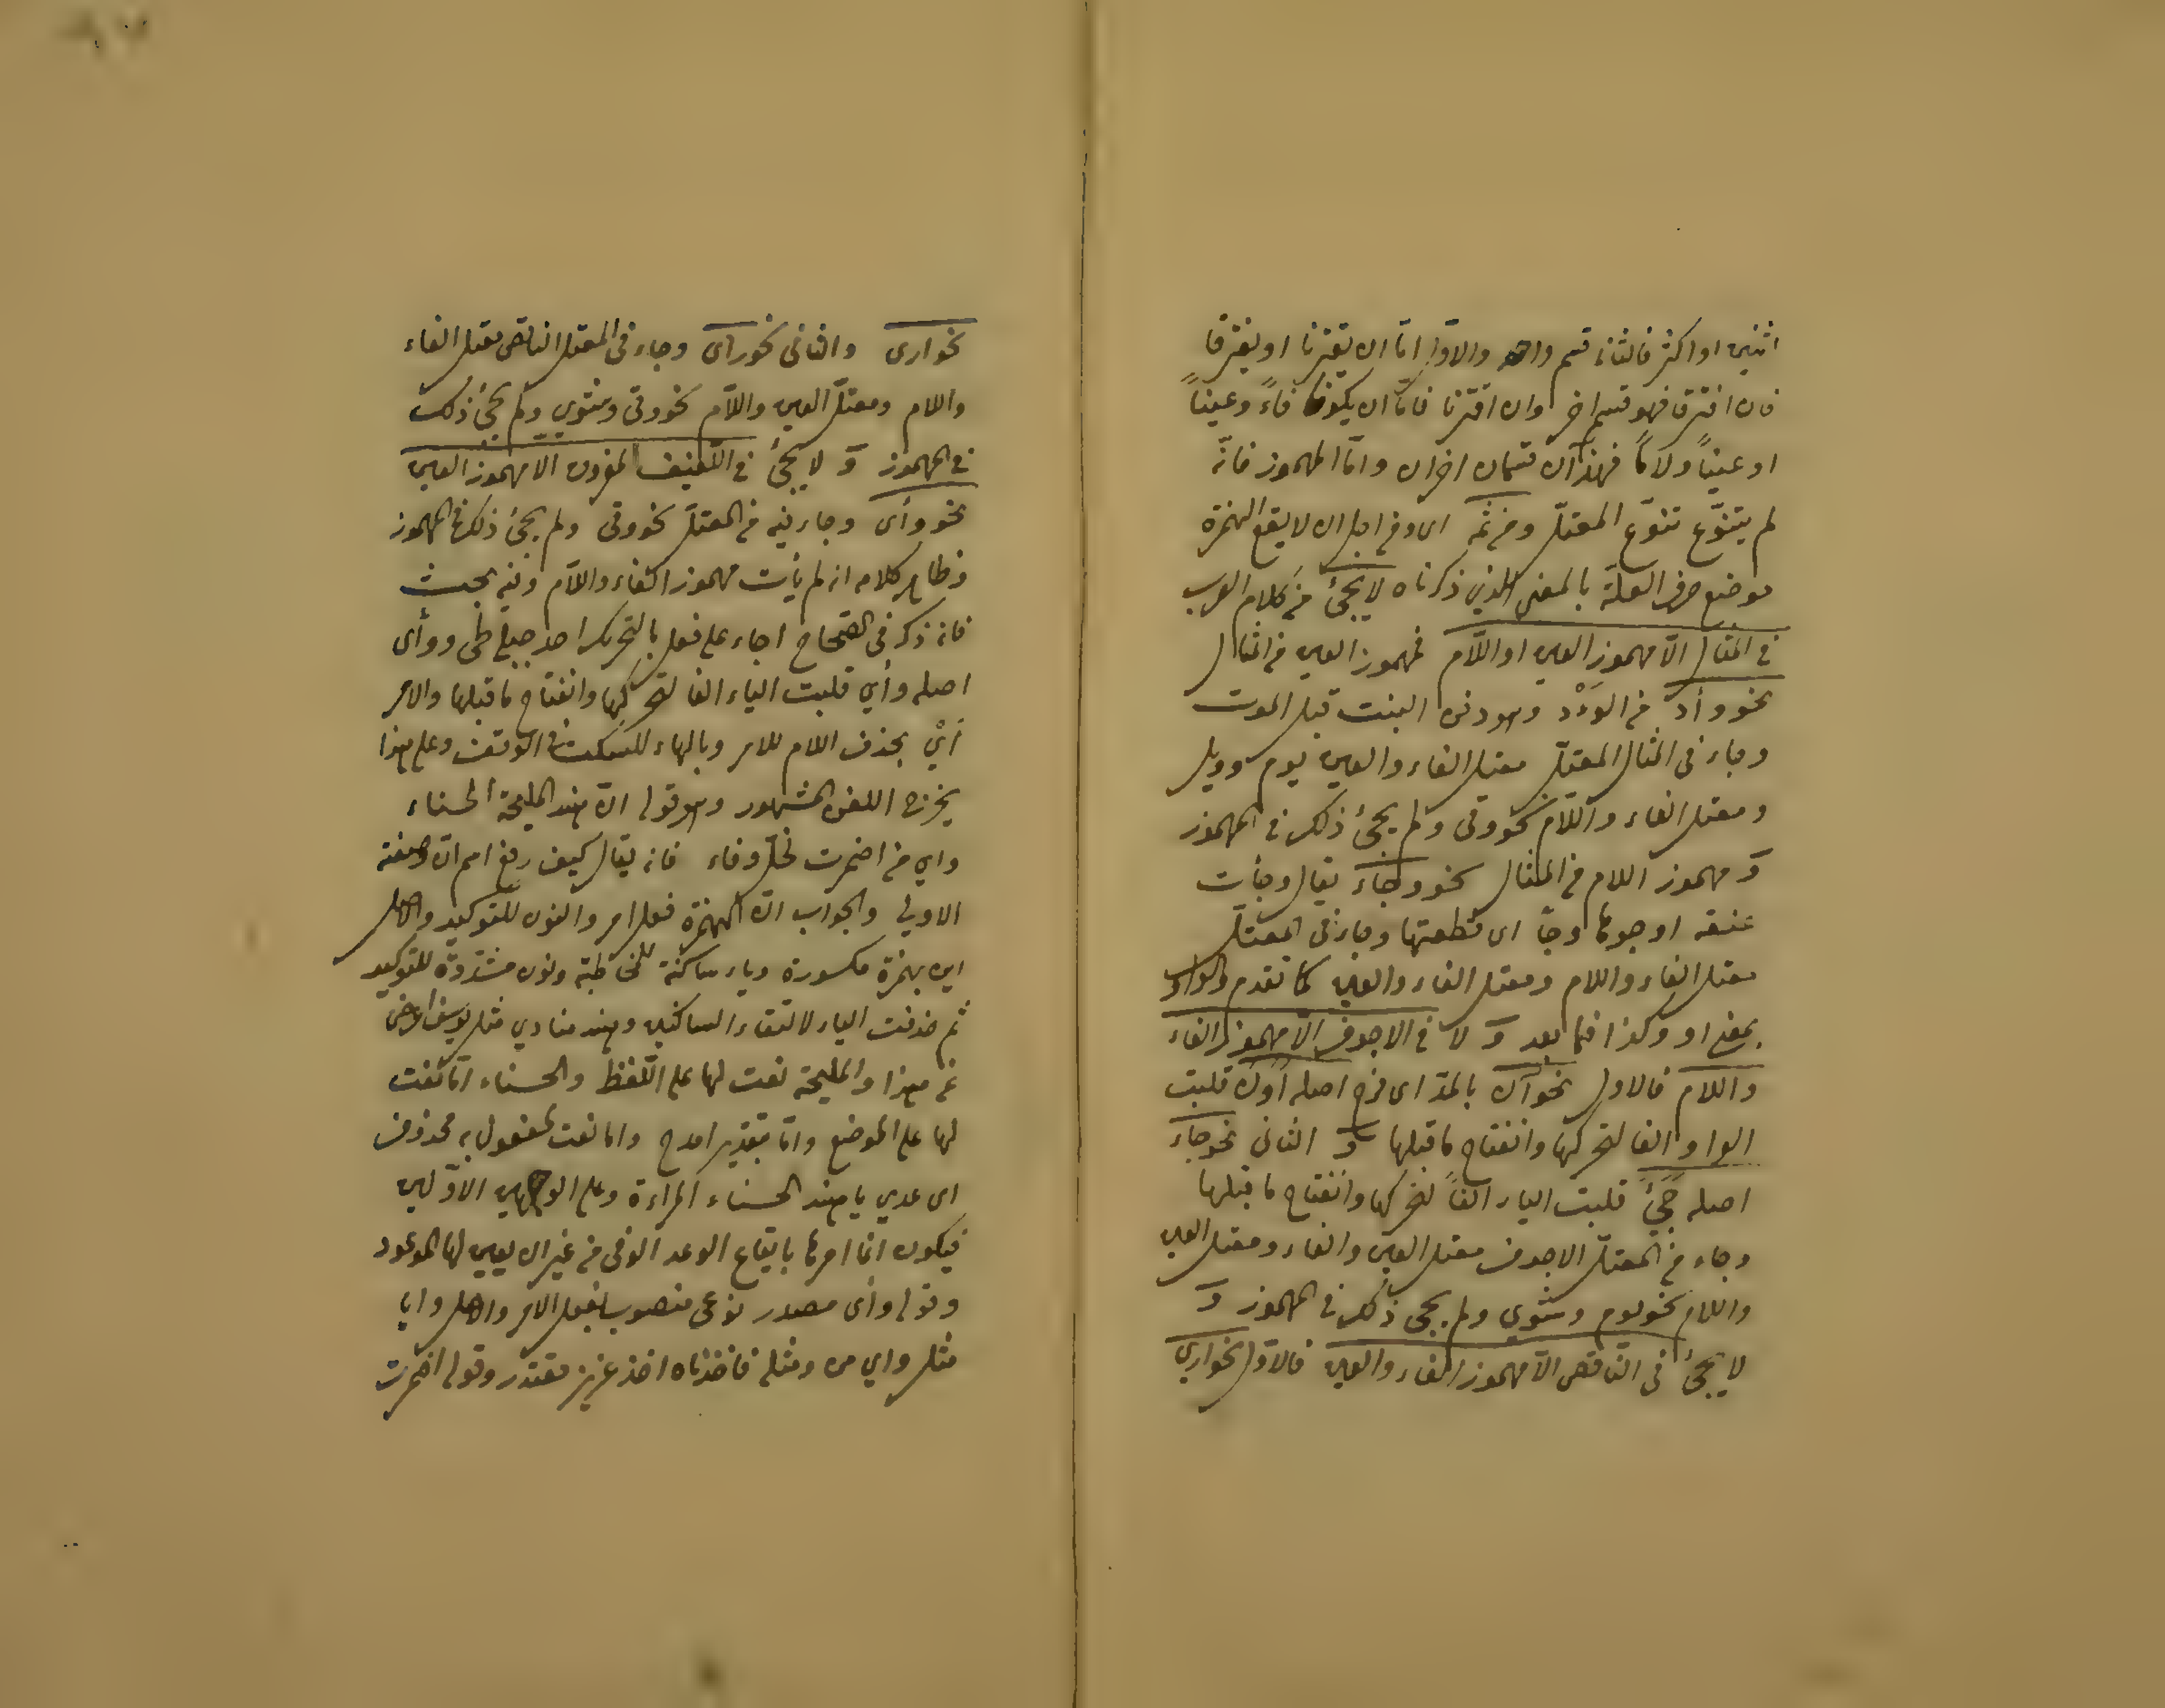 اثنين او اكثر فالثانى قسم واحد والاول اما ان يقترنا او يفترقا
فان افترقا فهو قسم اخر وان اقترنا فاما ان يكونا فاءً وعيناً
او عيناً ولاماً فهذان قسمان اخران واما المهموز فانه
لم يتنوّع تنوّع المعتلّ ومن ثمّه اى ومن اجل ان لا يقع الهمزة
موضع حرف العلّة بالمعنى الذي ذكرناه لا يجئ في كلام العرب
في المثال الّا مهموز العين او اللّام فمهموز العين في المثال
نحو وأد من الوَأْد وهو دفن البنت قبل الموت
وجاء في المثال المعتلّ معتل الفاء والعين نحو يوم وويل
ومعتل الفاء واللّام نحو وقى ولم يجئ ذلك في المهموز
وَ مهموز اللام في المثال نحو وجأ يقال وجأت
عنقه اوجوها وجأ اى قطعتها وجاء في المعتلّ
معتل الفاء واللام ومعتل الفاء والعين كما تقدم والواو
بمعنى او وكذا فيما بعد وَ لا في الاجوف الّا مهموز الفاء
واللام فالاول نحو آن بالمدّ اى اصله أَوَنَ قلبت
الواو الفا لتحركها وانفتاح ما قبلها وَ الثانى نحو جاء
اصله جَيَئَ قلبت الياء الفاً لتحركها وانفتاح ما قبلها
وجاء في المعتلّ الاجوف معتل العين والفاء ومعتل العين
واللام نحو يوم وشوى ولم يجئ ذلك في المهموز وَ
لا يجئ في الناقص الّا مهموز الفاء والعين فالاوّل نحو ارى
نحو ارى والثانى نحو رأى وجاء في المعتل الناقص معتل الفاء
واللام ومعتلّ العين واللّام نحو وقى وشوى ولم يجئ ذلك
في المهموز وَ لا يجئ في اللّفيف المفروق الا مهموز العين
نحو وأى وجاء فيه في المعتلّ نحو وقى ولم يجئ ذلك في المهموز
وظاهر كلامه انه لم يأت مهموز الفاء واللّام وفيه بحث
فانه ذكر في الصّحاح اجاء على فعل بالتحريك احد جبلى طى ووأى
اصله وأي قلبت الياء الفا لتحركها وانفتاح ما قبلها والامر
إيْ بحذف اللام للامر وبالهاء للسكت في الوقف وعلى هذا
يخرج اللغز المشهور وهو قوله انّ هند المليحة الحسناء
واي من اضمرت لخلّ وفاء فانه يقال كيف رفع اسم انّ وصفته
الاولى والجواب انّ الهمزة فعل امر والنون للتوكيد والاصل
اين بهمزة مكسورة وياء ساكنة للمخاطبة ونون مشدّدة للتوكيد
ثم حذفت الياء لالتقاء الساكنين وهند منادي مثل يوسف اعرض
عن هذا والمليحة نعت لها على اللّفظ والحسناء امّا نعت
لها على الموضع وامّا بتقدير امدح واما نعت لمفعول به محذوف
اى عدي يا هند الحسناء المراءة وعلى الوجهين الاوّلين
فيكون انما امرها بايقاع الوعد الوفى من غير ان يعين لها الموعود
وقوله وأى مصدر نوعى منصوب بفعل الامر والاصل وايا
مثل واي من ومثله فاخذناه اخذ عزيز مقتدر وقوله اضمرت